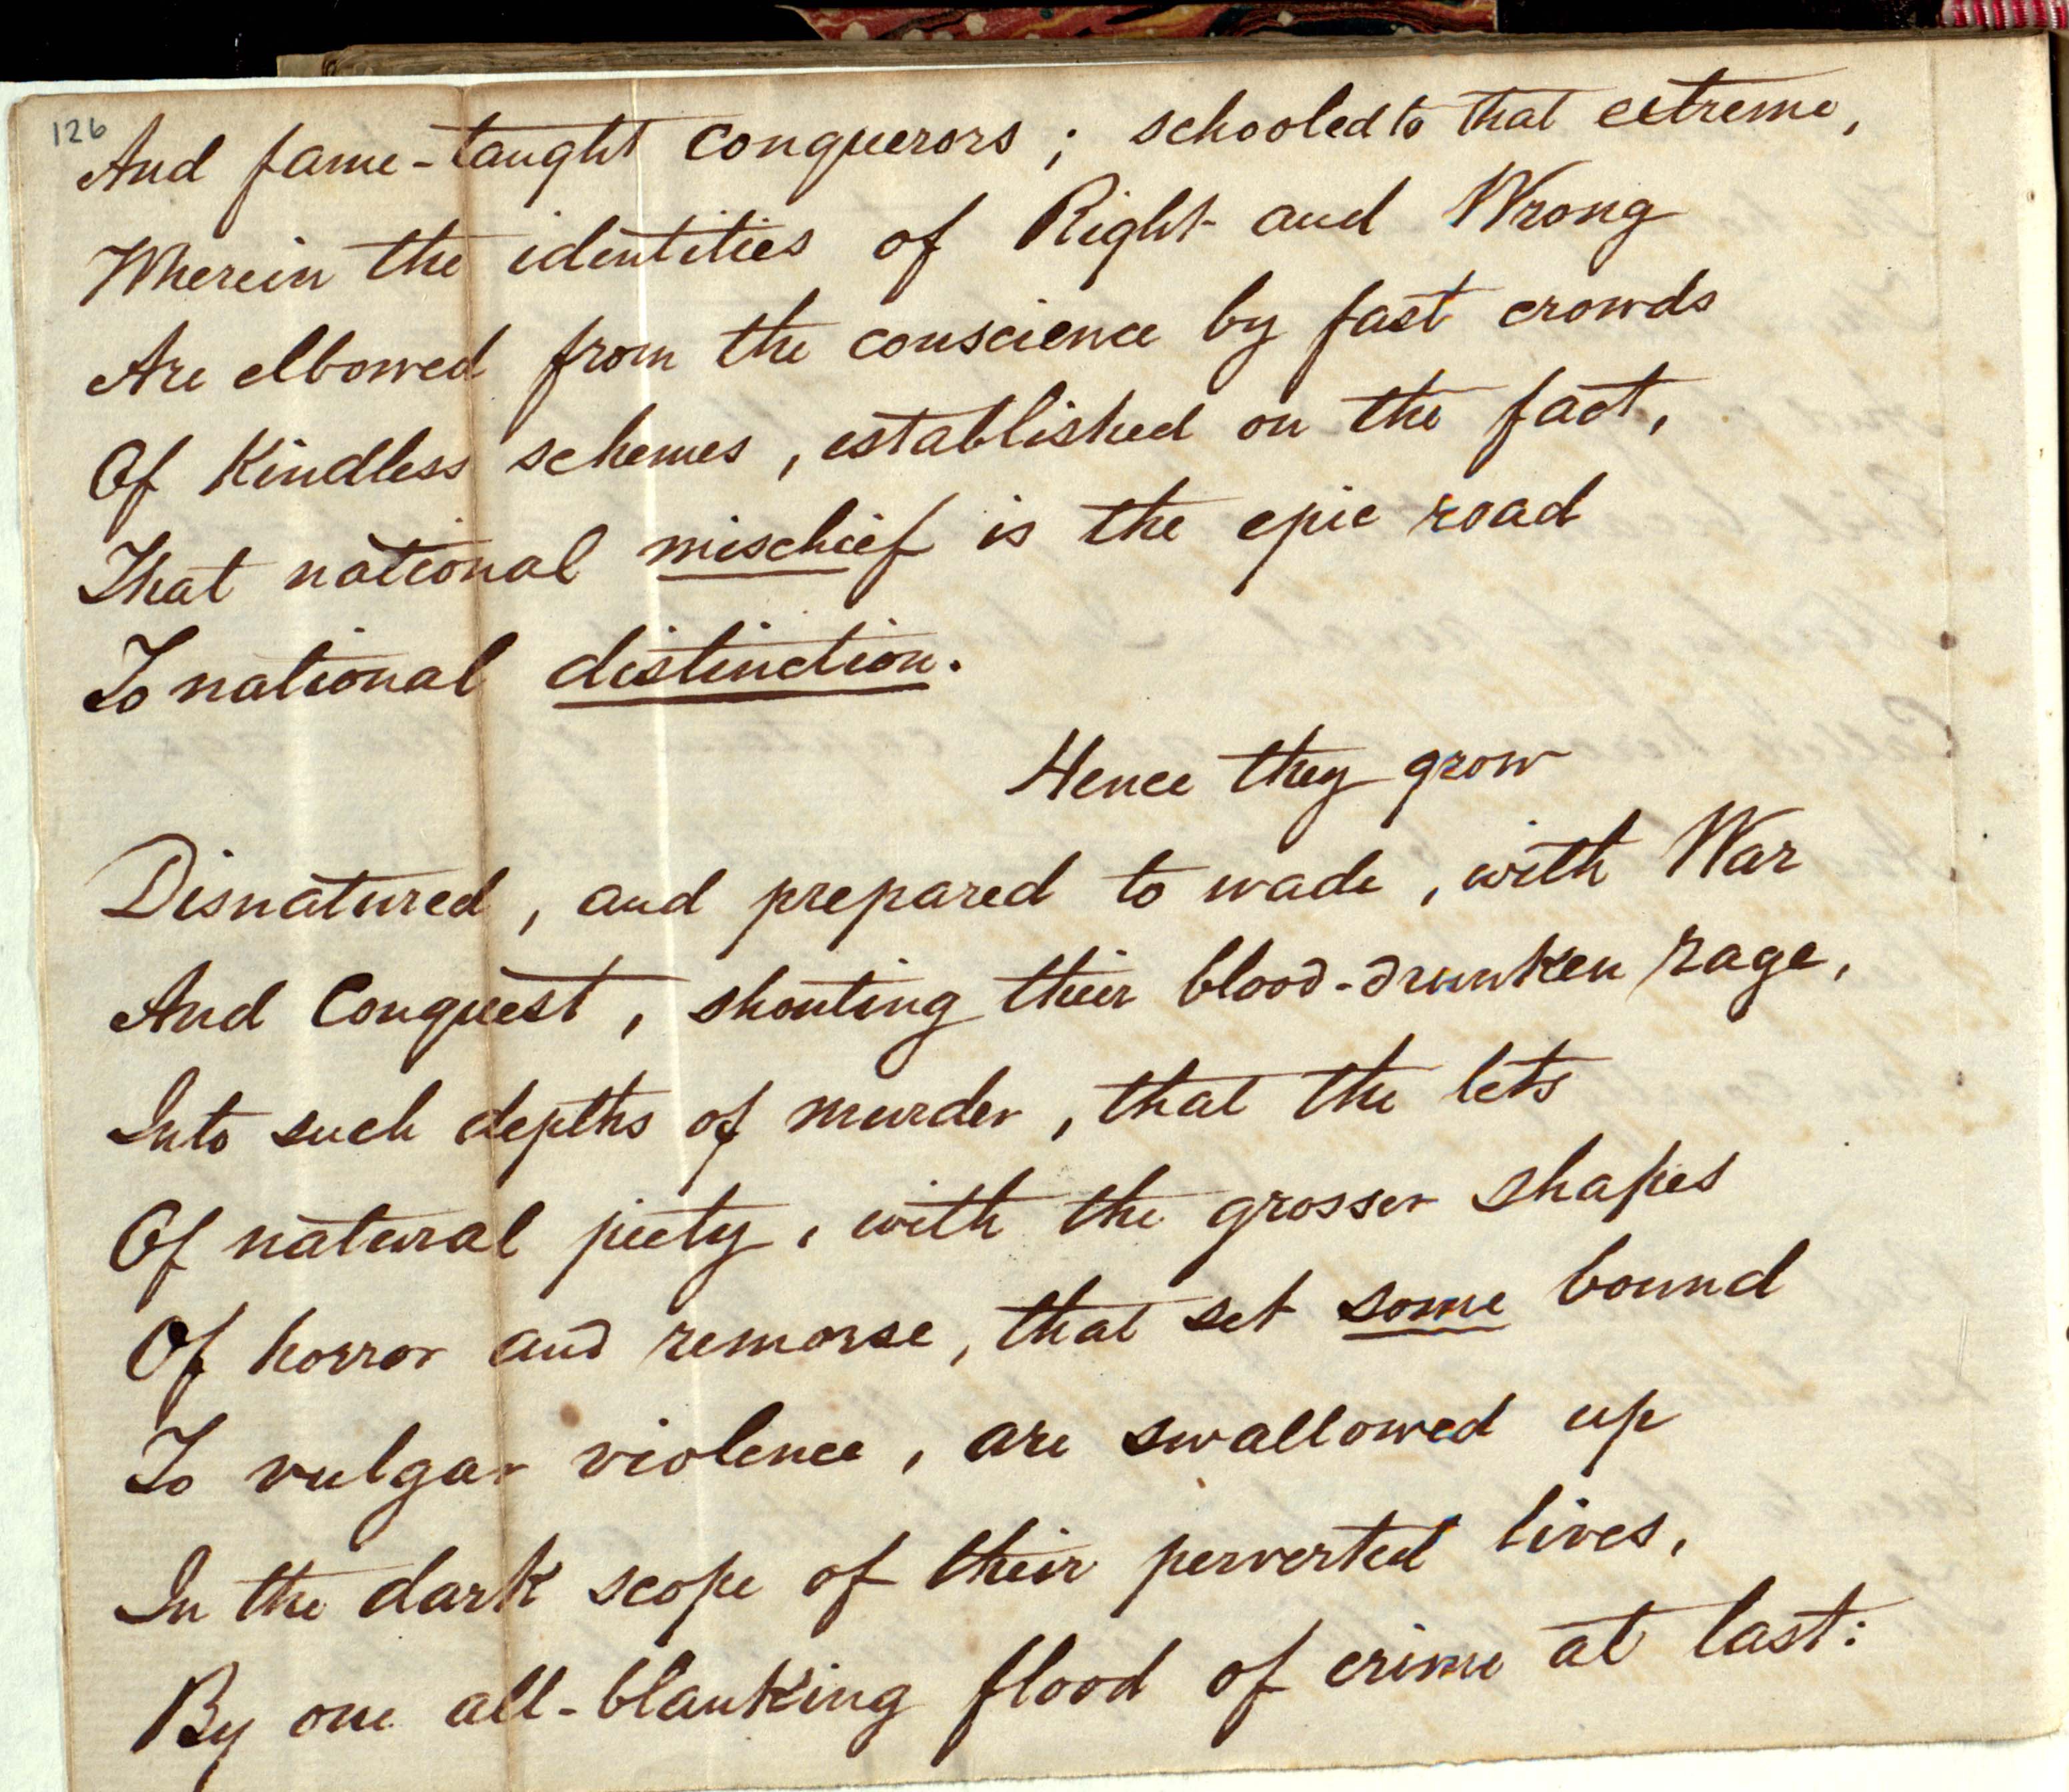 126
And fame-taught conquerors; schooled to that extreme,
Wherein the identities of Right and Wrong
Are elbowed from the conscience by fast crowds
Of Kindless schemes, established on the fact,
That national mischief is the epic road
To national distinction.
Hence they grow
Disnatured, and prepared to wade, with War
And Conquest, shouting their blood-drunken rage,
Into such depths of murder, that the lets
Of natural piety, with the grosser shapes
Of horror and remorse, that set some bound
To vulgar violence, are swallowed up
In the dark scope of their perverted lives,
By one all-blanking flood of crime at last: